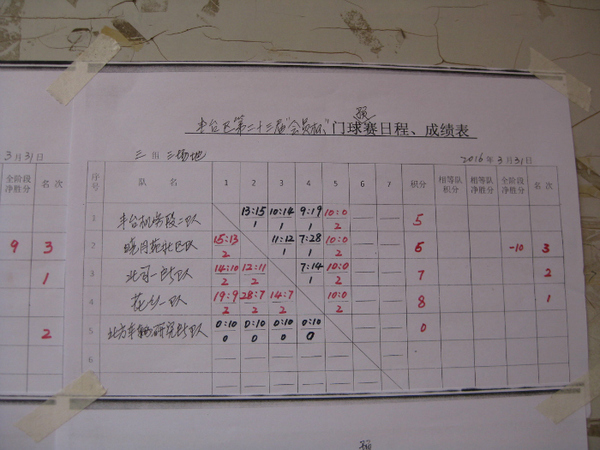 预
丰台区第二十三届"会员杯"门球赛日程、成绩表
3月31日
三 三场地
2016年3月31日
全阶段净胜分 名次
序号 队名 1 2 3 4 5 6 7 积分 相等队积分 相等队净胜分 全阶段净胜分 名次
1 丰台机务段二队 13:15 10:14 9:19 10:0 5
1 1 1 2
9 3
2 晓月苑社区队 15:13 11:12 7:28 10:0 6 -10 3
2 1 1 2
1
3 14:10 12:11 7:14 10:0 7 2
2 2 1 2
4 花乡一队 19:9 28:7 14:7 10:0 8 1
2 2 2 2
2
5 北方车辆研究所队 0:10 0:10 0:10 0:10 0
0 0 0 0
6
预